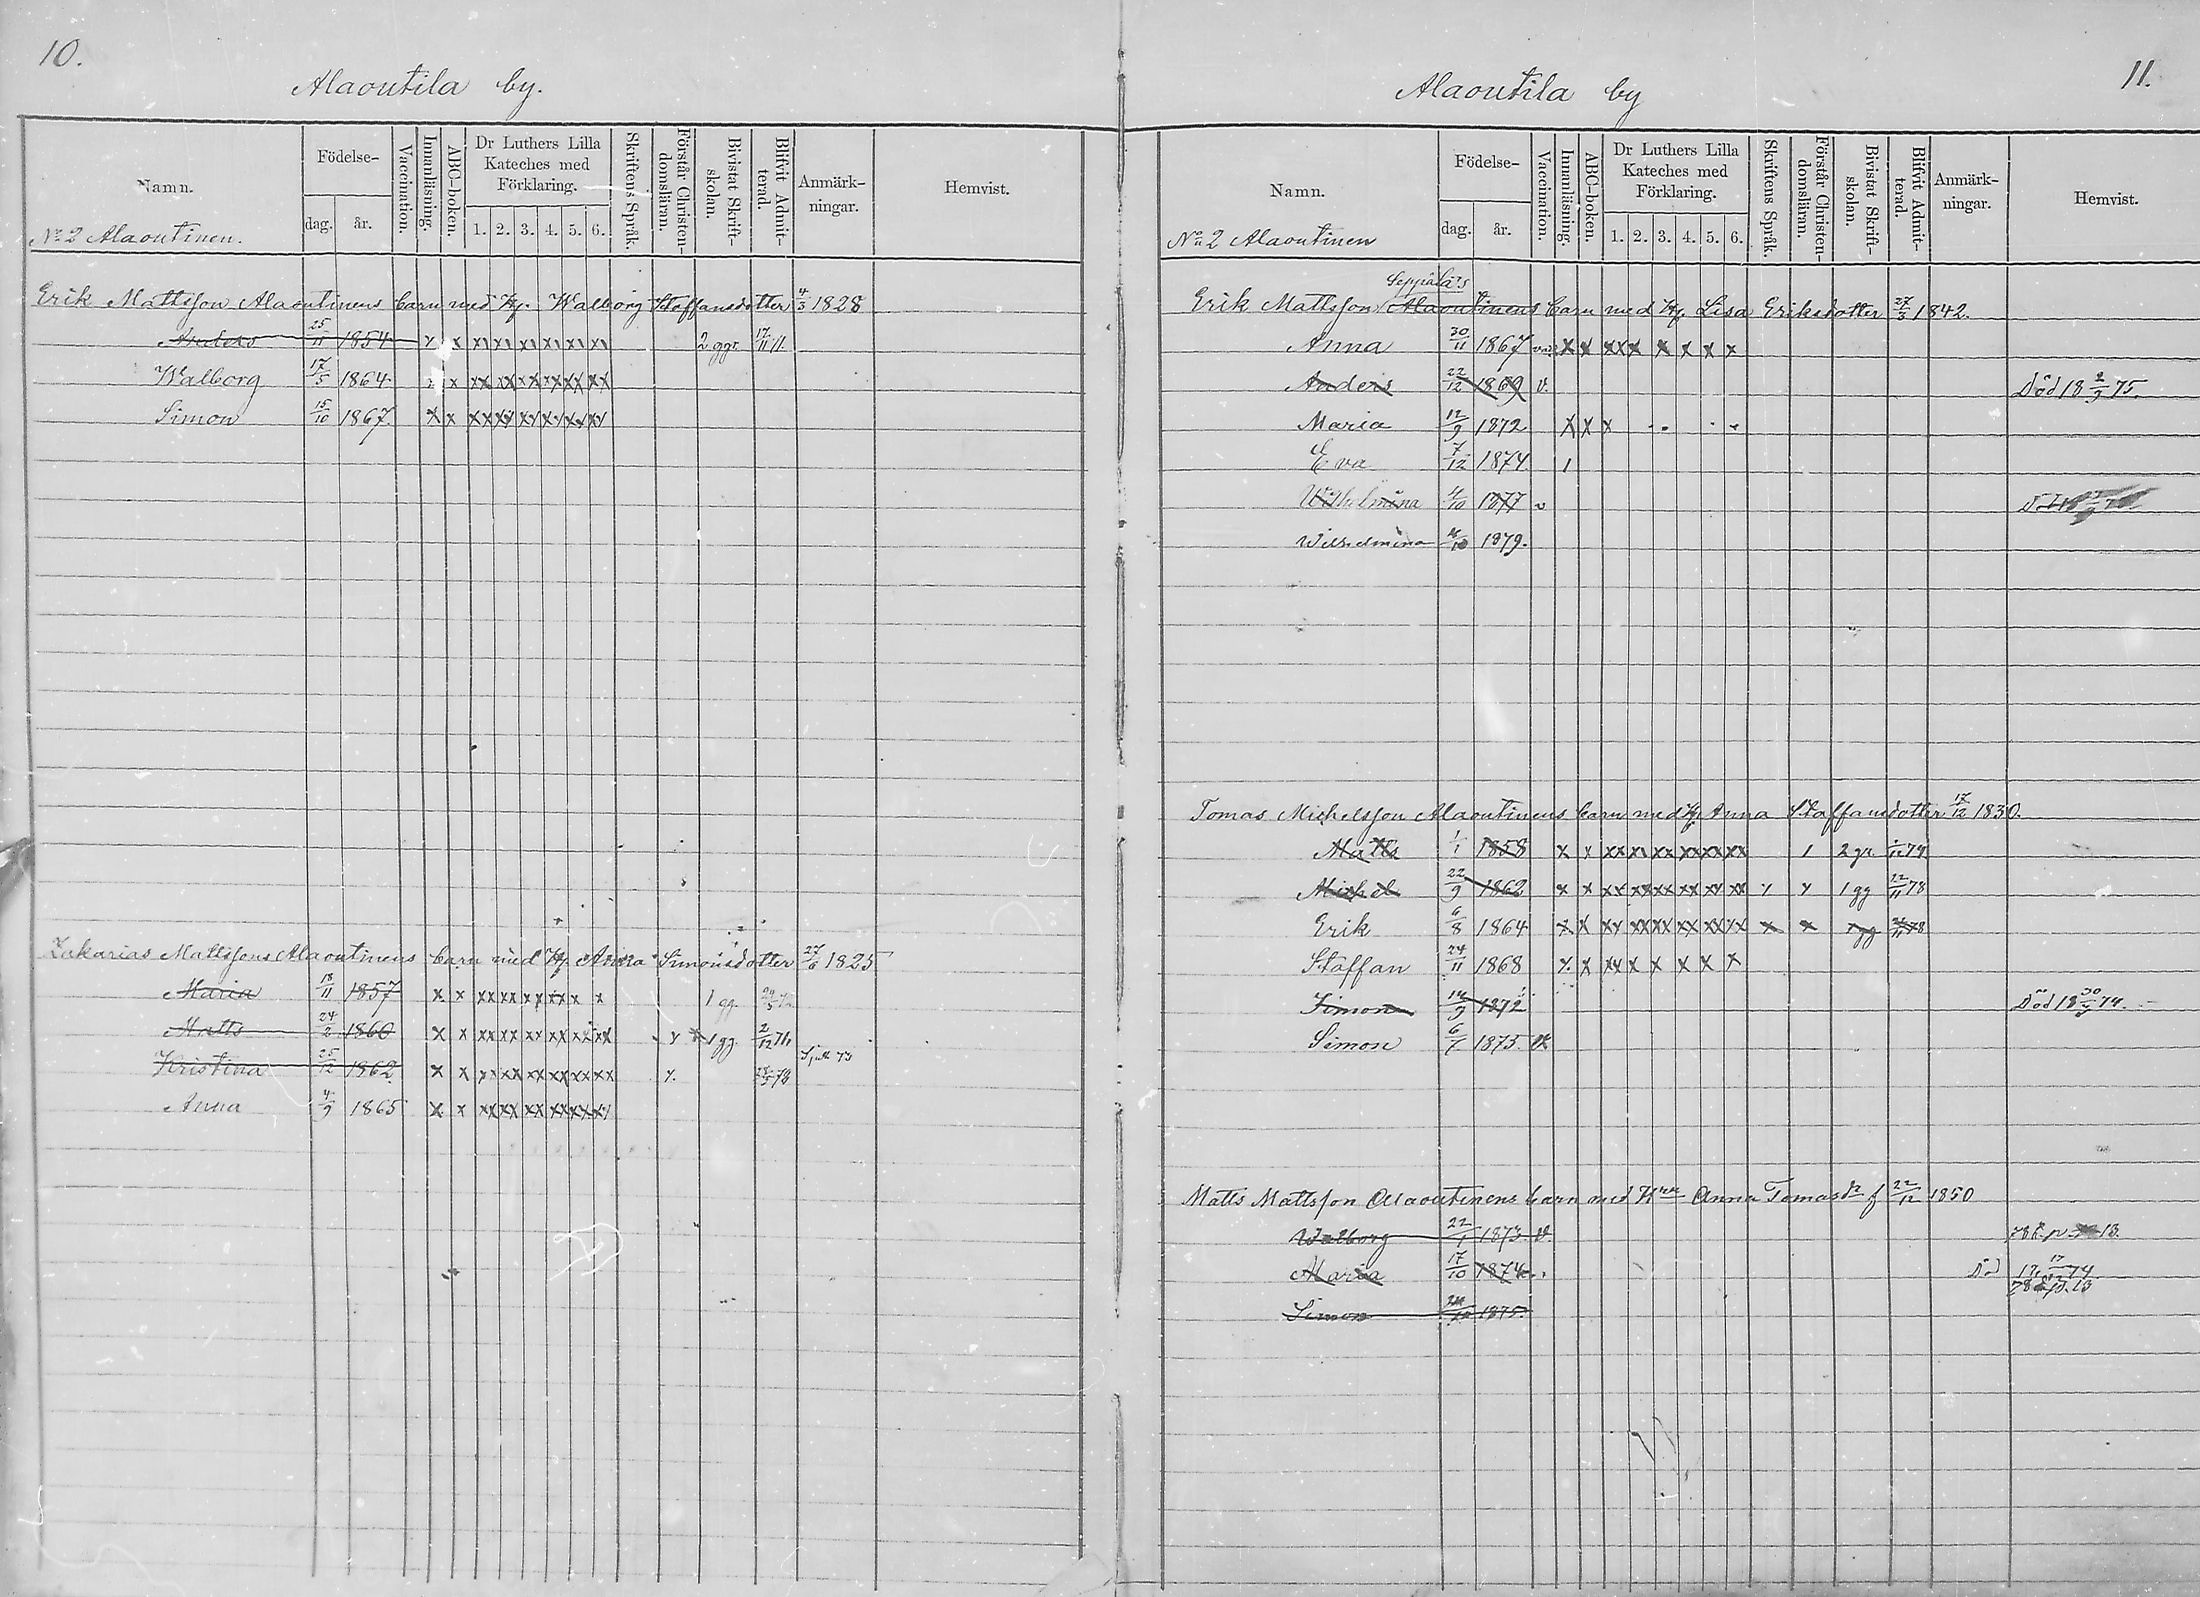 10.
Alaoutila by.
Namn.
Födelse-
dag. år.
Vaccination.
Innanläsning.
ABC-boken.
Dr Luthers Lilla Kateches med Förklaring.
1. 2. 3. 4. 5. 6.
Skriftens Språk.
Förstår Christendomsläran.
Bivistat Skriftskolan.
Blifvit Admitterad.
Anmärkningar.
Hemvist.
No 2 Alaoutinen.
Erik Mattsson Alaoutinens barn med H. Walborg Staffansdotter 4/3 1828
Anders 25/11 1854 x x xx xx xx xx xx xx 2 ggr 17/11 71
Walborg 17/5 1864 x x xx xx xx xx xx xx
Simon 15/10 1867 x x xx xx xx xx xx xx
Zakarias Mattssons Alaoutinens barn med H. Anna Simonsdotter 27/6 1825
Maria 18/11 1857 x x xx xx xx xx x x 1 gg.
Matts 24/2 1860 x x xx xx xx xx xx xx 1 gg. 2/12 76
Kristina 25/12 1862 x x xx xx xx xx xx xx x 78
Anna 4/9 1865 x x xx xx xx xx xx xx
11.
Alaoutila by
Namn.
Födelse-
dag. år.
Vaccination.
Innanläsning.
ABC-boken.
Dr Luthers Lilla Kateches med Förklaring.
1. 2. 3. 4. 5. 6.
Skriftens Språk.
Förstår Christendomsläran.
Bivistat Skriftskolan.
Blifvit Admitterad.
Anmärkningar.
Hemvist.
No 2 Alaoutinen
Seppälä's
Erik Mattsson Alaoutinens barn med H. Lisa Eriksdotter 27/3 1842.
Anna 30/11 1867 x x xx x x x x x
Anders 22/12 1869 v. Död 18 2/9 75.
Maria 12/9 1872 x x x
Eva 7/12 1874 1
Wilhelmina 4/10 1877 v
Wilhelmina 1879.
Tomas Michelsson Alaoutinens barn med H. Anna Staffansdotter 17/12 1830.
Matts 1/1 1858 x x xx xx xx xx xx xx 1 2 gr. 74
Michel 22/9 1862 x x xx xx xx xx xx xx x x 1 gg 22/11 78
Erik 6/8 1864 x x xx xx xx xx xx xx x x 1 gg 78
Staffan 24/11 1868 x x xx x x x x x
Simon 14/9 1872 Död 18 30/9 74.
Simon 1875.
Matts Mattsson Alaoutinens barn med Anna Tomasdr f 22/12 1850
Walborg 22/1 1873. v. 78 13.
Maria 17/10 1874 Död 74
Simon 1875. 78 p. 13